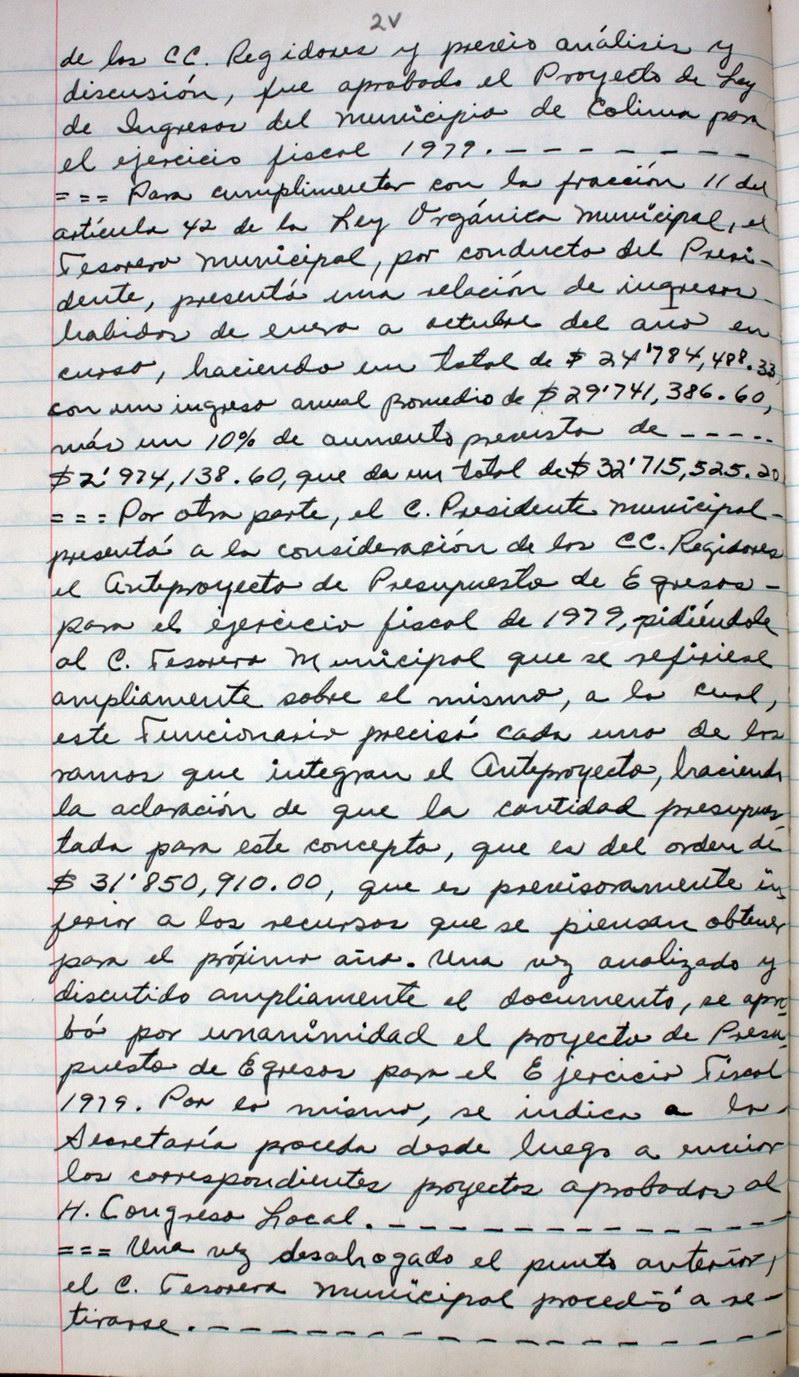 2V
de los CC. Regidores y previo análisis y
discusión, fue aprobado el Proyecto de Ley
de Ingresos del Municipio de Colima para
el ejercicio fiscal 1979. - - - - - - - - -
=== Para cumplimentar con la fracción 11 del
artículo 42 de la Ley Orgánica Municipal, el
Tesorero Municipal, por conducto del Presi-
dente, presentó una relación de ingresos
habidos de enero a octubre del año en
curso, haciendo un total de $ 24'784,488.33,
con un ingreso anual promedio de $ 29'741,386.60,
más un 10% de aumento previsto de - - - - -
$ 2'974,138.60, que da un total de $ 32'715,525.20
=== Por otra parte, el C. Presidente Municipal-
presentó a la consideración de los CC. Regidores
el Anteproyecto de Presupuesto de Egresos -
para el ejercicio fiscal de 1979, pidiéndole
al C. Tesorero Municipal que se refiriese
ampliamente sobre el mismo, a lo cual,
este Funcionario precisó cada uno de los
ramos que integran el Anteproyecto, haciendo
la aclaración de que la cantidad presupues
tada para este concepto, que es del orden de
$ 31'850,910.00, que es previsoramente in
ferior a los recursos que se piensan obtener
para el próximo año. Una vez analizado y
discutido ampliamente el documento, se apro-
bó por unanimidad el proyecto de Presu-
puesto de Egresos para el Ejercicio Fiscal
1979. Por lo mismo, se indica a la
Secretaría proceda desde luego a enviar
los correspondientes proyectos aprobados al
H. Congreso Local. - - - - - - - - - - - -
=== Una vez desahogado el punto anterior,
el C. Tesorero Municipal procedió a re-
tirarse. - - - - - - - - - - - - - - - - -